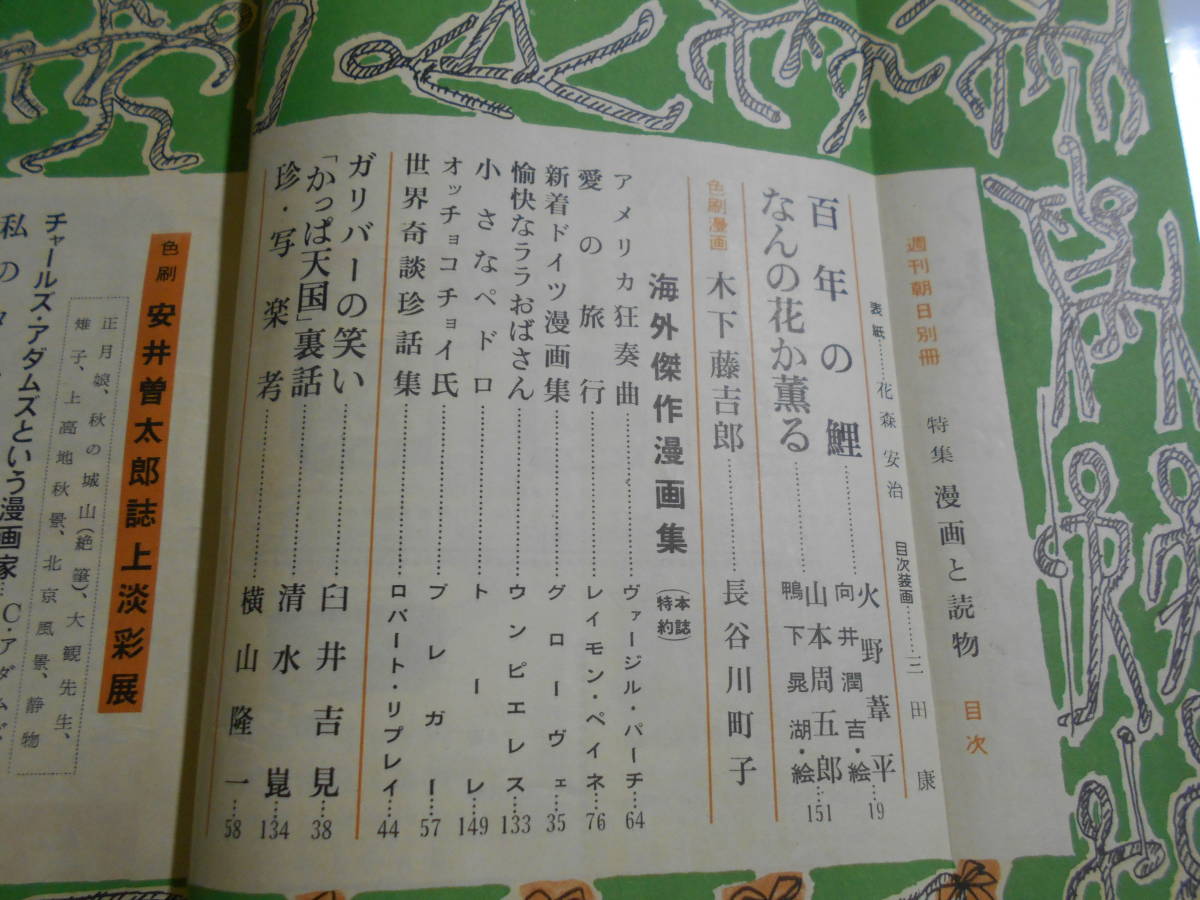 週刊朝日別冊 特集 漫画と読物 目次
表紙………花森安治 目次装画………三田康
百年の鯉………火野葦平…19
向井潤吉・絵
なんの花か薫る………山本周五郎…151
鴨下晃湖・絵
色刷漫画 木下藤吉郎………長谷川町子
海外傑作漫画集(本誌特約)
アメリカ狂奏曲………ヴァージル・パーチ…64
愛の旅行………レイモン・ペイネ…76
新着ドイツ漫画集………グローヴェ…35
愉快なララおばさん………ウンピエレス…133
小さなペドロ………トーレ…149
オッチョコチョイ氏………ブレガー…57
世界奇談珍話集………ロバート・リプレイ…44
ガリバーの笑い………臼井吉見…38
「かっぱ天国」裏話………清水崑…134
珍・写楽考………横山隆一…58
色刷 安井曽太郎誌上淡彩展
正月娘、秋の城山(絶筆)、大観先生、
雉子、上高地秋景、北京風景、静物
チャールズ・アダムズという漫画家…C・アダムズ
私の